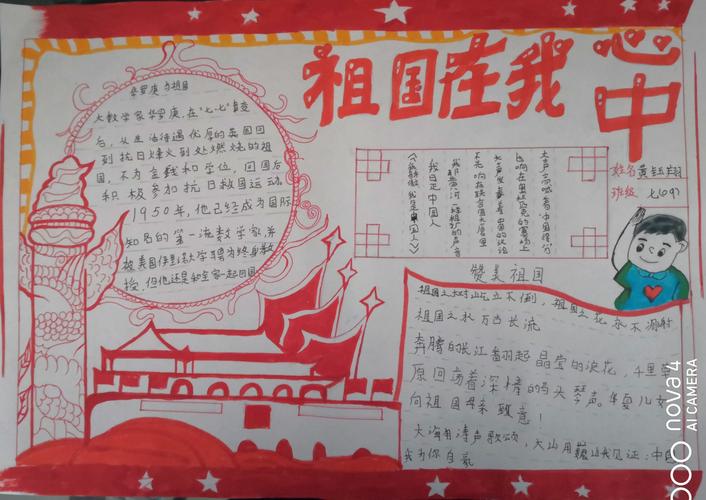 祖国在我心中
华罗庚与祖国
大数学家华罗庚,在"七·七"事变
后,从生活待遇优厚的英国回
到抗日烽火到处燃烧的祖
国,不为金钱和学位,回国后
积极参加抗日救国运动
1950年,他已经成为国际
知名的第一流数学家,并
被美国伊里诺大学聘为终身教
授,但他还是和全家一起回国
姓名黄钰翔
班级 七(09)
大声高喊着:中国得分
在联合国大厦里
大声发表着中国的议论
我是中国人
《我骄傲,我是中国人》
赞美祖国
祖国之树屹立不倒,祖国之花永不凋谢
祖国之水万古长流
奔腾的长江翻起晶莹的浪花,千里草
原回荡着深情的马头琴声。华夏儿女
向祖国母亲致意!
大海用涛声歌颂,大山用巍峨见证:中国
我为你自豪
nova 4
AI CAMERA